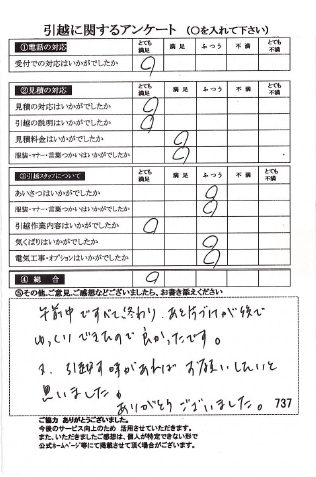 引越に関するアンケート (〇を入れて下さい)
①電話の対応 とても満足 満足 ふつう 不満 とても不満
受付での対応はいかがでしたか
②見積の対応 とても満足 満足 ふつう 不満 とても不満
見積の対応はいかがでしたか
引越の説明はいかがでしたか
見積料金はいかがでしたか
服装・マナー・言葉つかいはいかがでしたか
③引越スタッフについて とても満足 満足 ふつう 不満 とても不満
あいさつはいかがでしたか
服装・マナー・言葉つかいはいかがでしたか
引越作業内容はいかがでしたか
気くばりはいかがでしたか
電気工事・オプションはいかがでしたか
④ 総 合
⑤その他、ご意見、ご感想などございましたら、お書き添えください
午前中ですべて終わり、あと片づけが後で
ゆっくりできたので良かったです。
又、引越す時があればお願いしたいと
思いました。
ありがとうございました。 737
ご協力 ありがとうございました。
今後のサービス向上のため 活用させていただきます。
また、いただきましたご感想は、個人が特定できない形で
公式ホームページ等にて掲載させて頂く場合がございます。